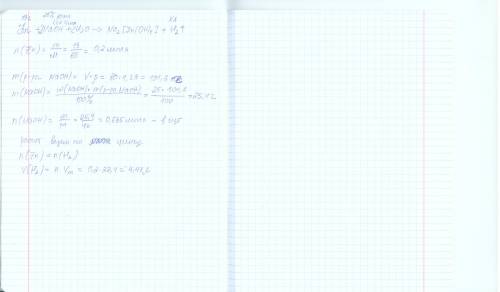 13г 25% 80мл Xл
Zn + 2NaOH + 2H₂O → Na₂[Zn(OH)₄] + H₂↑
n(Zn) = m/M = 13/65 = 0,2 моль
m(р-ра NaOH) = V·ρ = 80·1,27 = 101,6
m(NaOH) = w(NaOH)·m(р-ра NaOH)/100% = 25·101,6/100 = 25,4 г
n(NaOH) = m/M = 25,4/40 = 0,635 моль –
расчет ведем по цинку
n(Zn) = n(H₂)
V(H₂) = n·Vm = 0,2·22,4 = 4,48 л